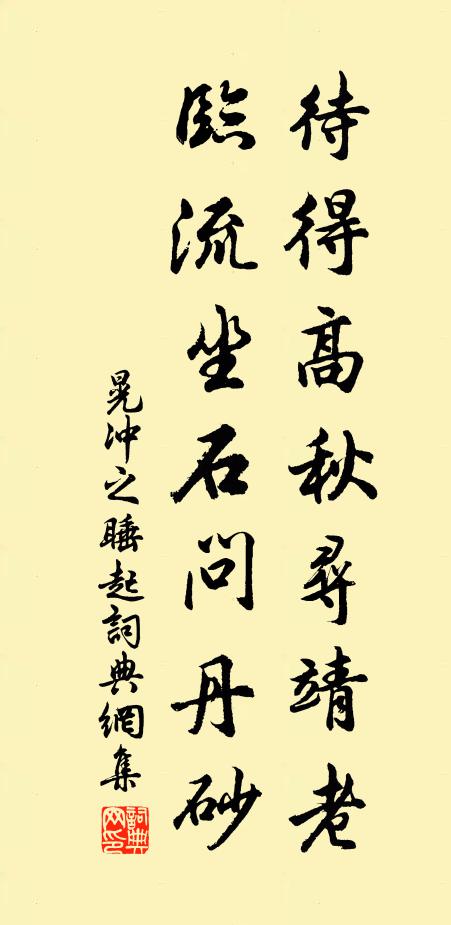 待得高秋尋靖老
臨流坐石問丹砂
晁沖之睡起詞典網集
詞典网印